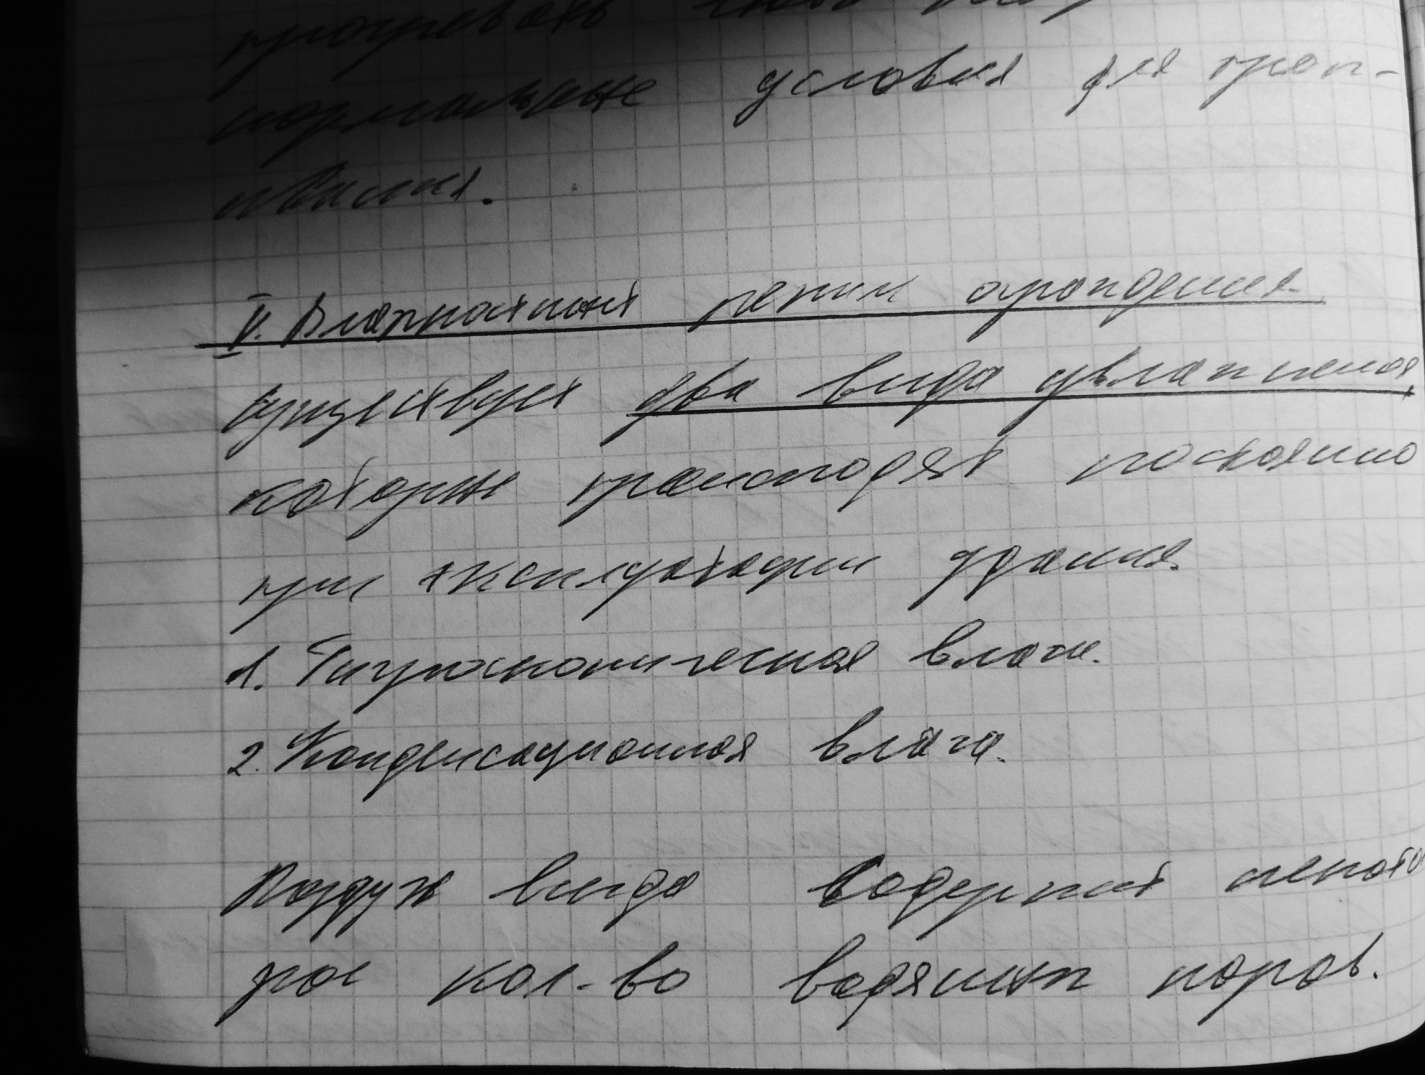 нормальные условия для
V. Влажностный режим ограждения
Существует два вида увлажнения
которые происходят постоянно
при эксплуатации здания.
1. Гигроскопическая влага.
2. Конденсационная влага.
Воздух всегда содержит некото
рое кол-во водяных паров.